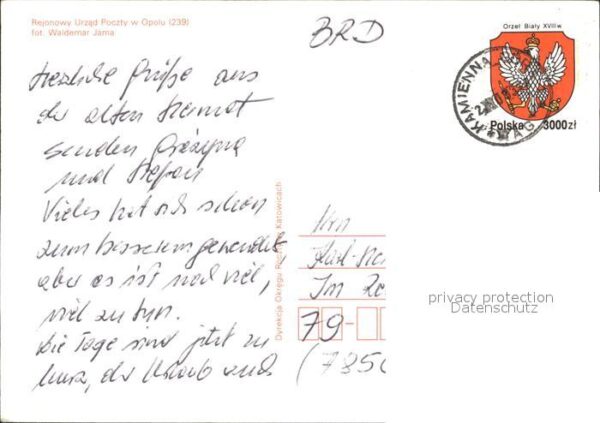 Rejonowy Urząd Poczty w Opolu (239)
fot. Waldemar Jama
BRD
Orzeł Biały XVIII w
Polska 3000zł
KAMIENNA
Herzliche Grüße aus
der alten Heimat
senden Grażyna
und Stefan
Vieles hat sich schon
zum besseren gewendet,
aber es ist noch viel,
viel zu tun.
Die Tage sind jetzt zu
kurz, der Urlaub auch
Dyrekcja Okręgu Poczty w Katowicach
Hrn
Karl-
Im
79-
(785
privacy protection
Datenschutz